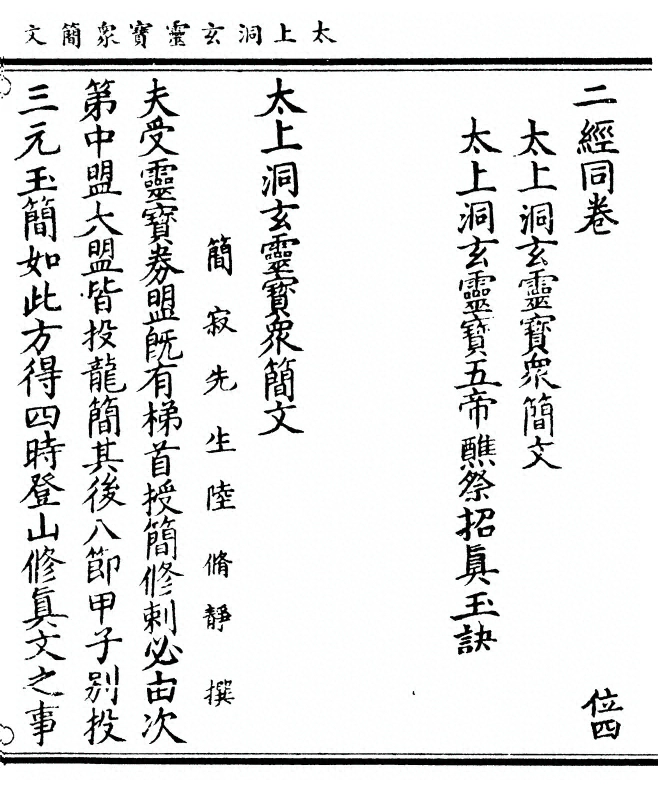 太上洞玄靈寶衆簡文
二經同卷 位四
太上洞玄靈寶衆簡文
太上洞玄靈寶五帝醮祭招眞玉訣
太上洞玄靈寶衆簡文
簡寂先生陸脩靜撰
夫受靈寶券盟旣有梯首授簡修刺必由次
第中盟大盟皆投龍簡其後八節甲子別投
三元玉簡如此方得四時登山修眞文之事